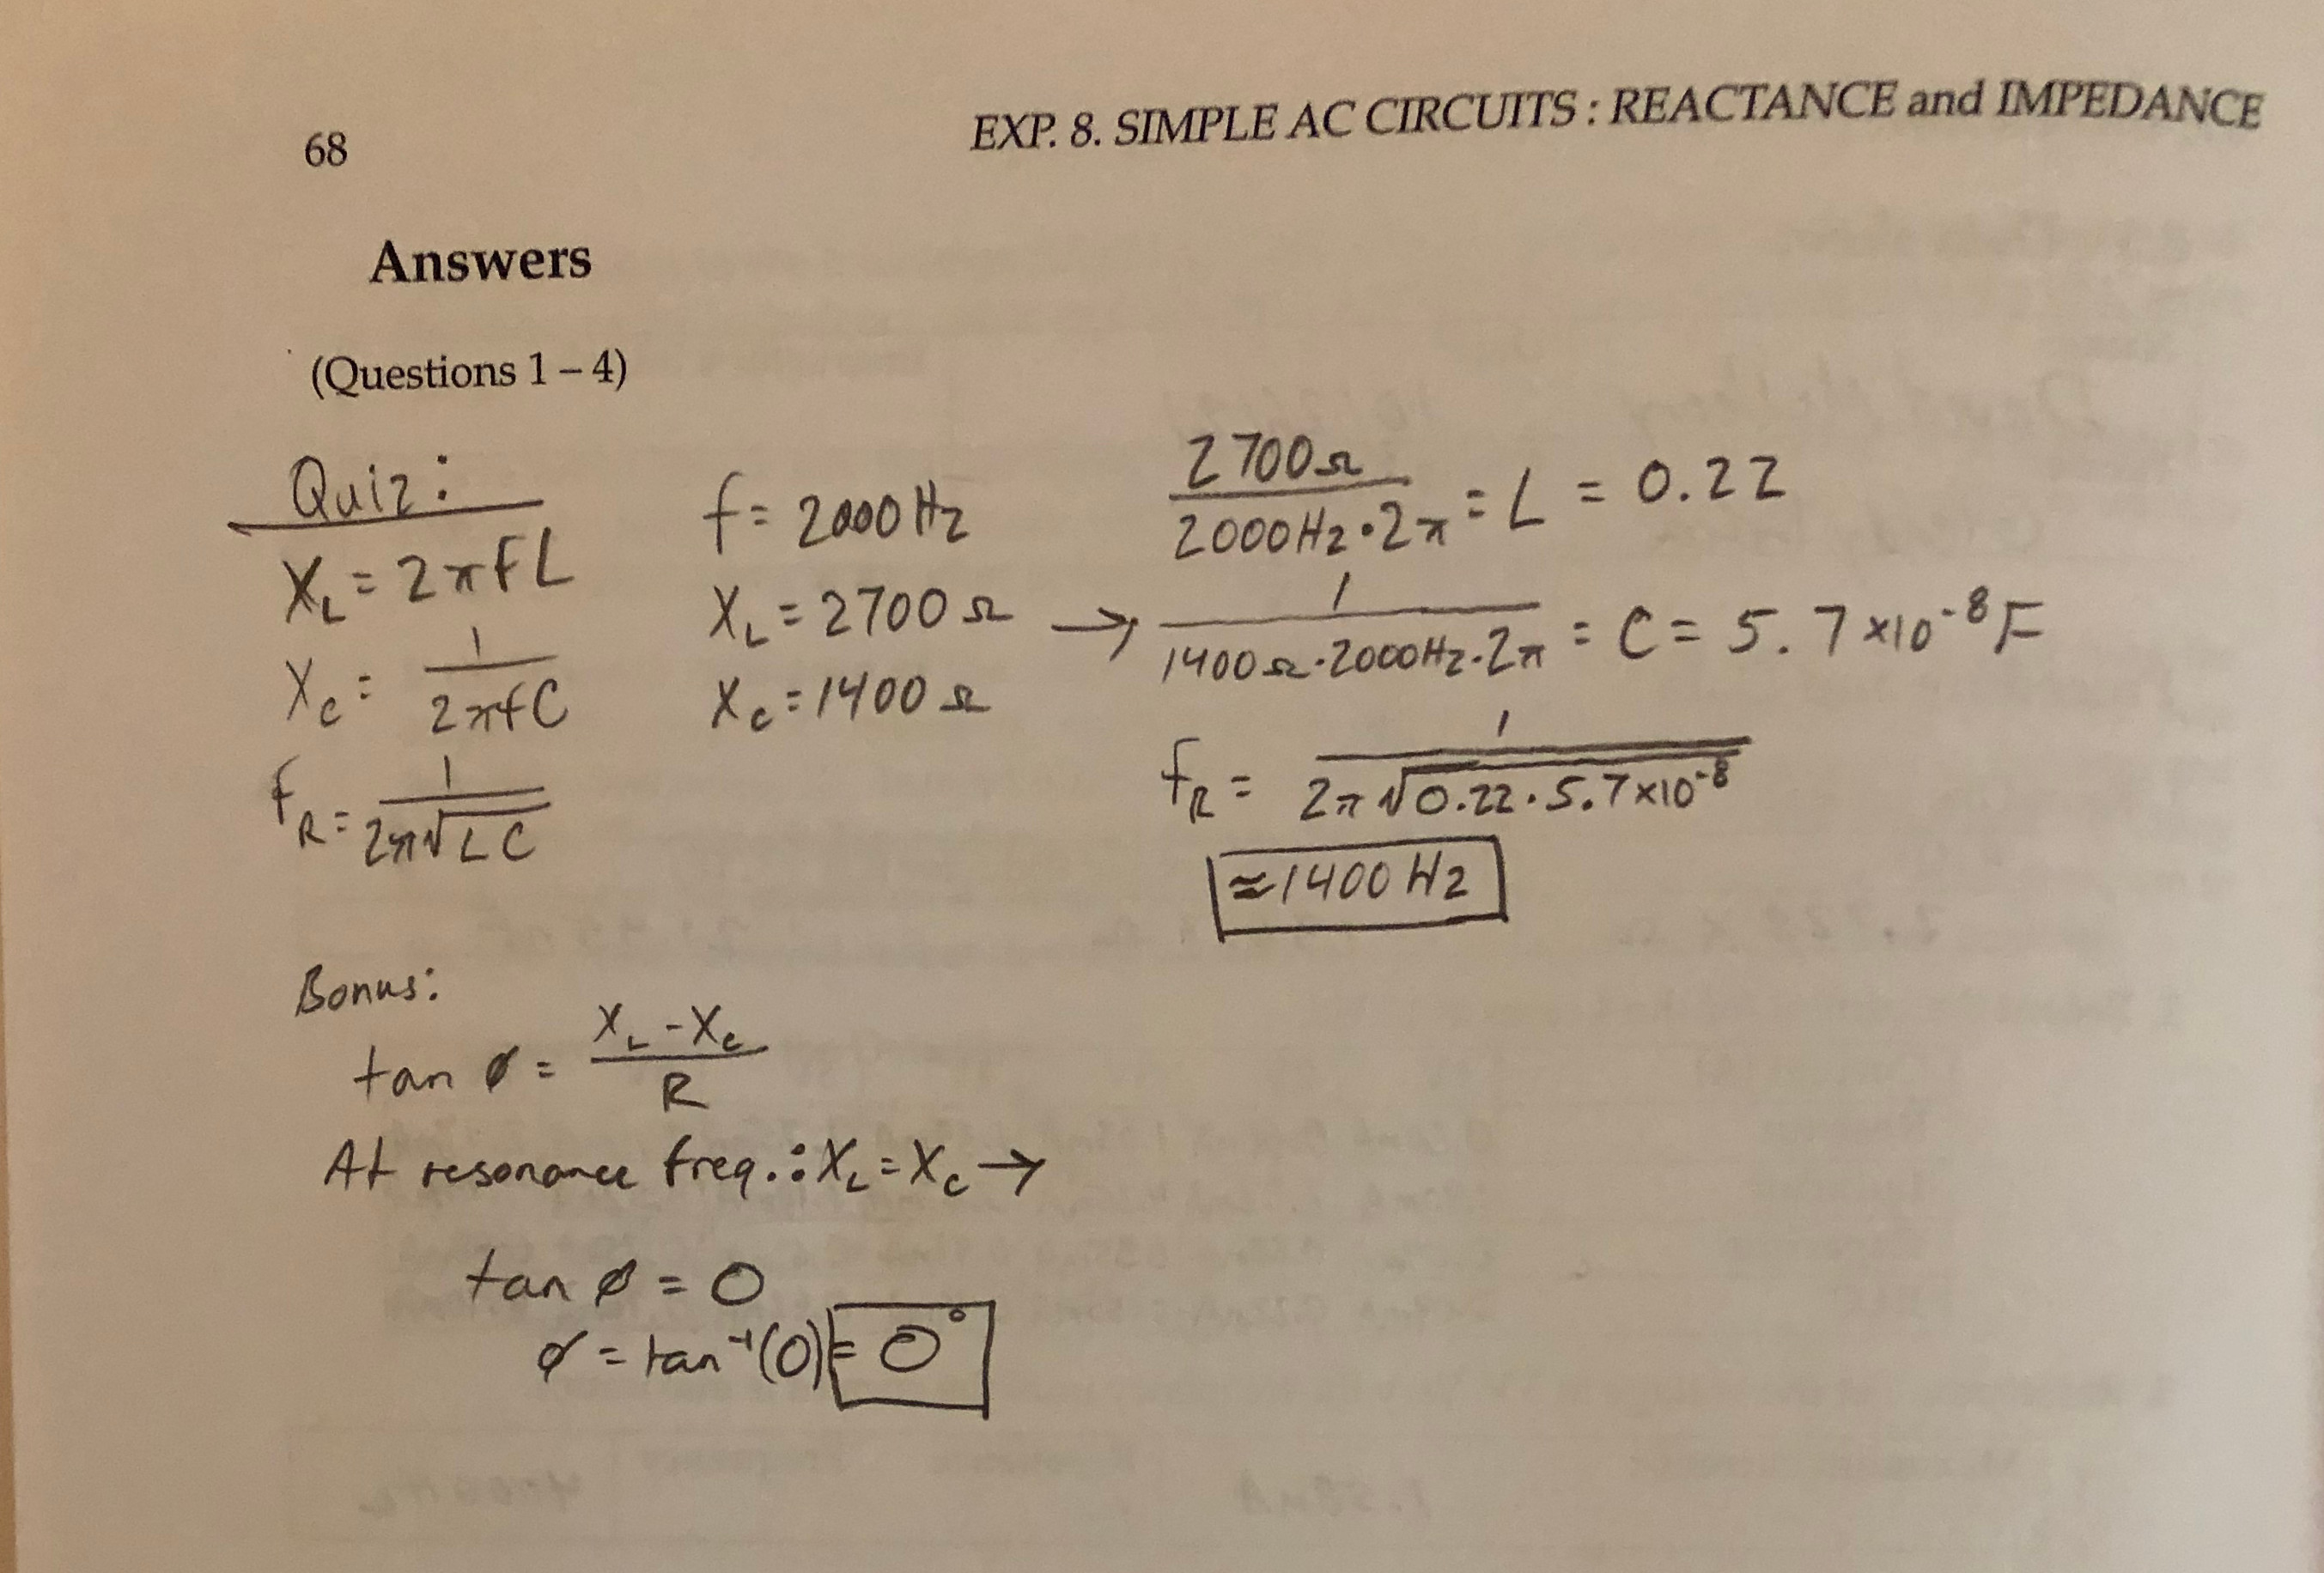 68
EXP. 8. SIMPLE AC CIRCUITS : REACTANCE and IMPEDANCE
Answers
(Questions 1 – 4)
Quiz:
X_L = 2πfL
X_C = 1/(2πfC)
f_R = 1/(2π√(LC))
f = 2000 Hz
X_L = 2700 Ω →
X_C = 1400 Ω
2700Ω/(2000Hz·2π) = L = 0.22
1/(1400Ω·2000Hz·2π) = C = 5.7×10⁻⁸ F
f_R = 1/(2π√(0.22·5.7×10⁻⁸))
≈1400 Hz
Bonus:
tan ø = (X_L - X_C)/R
At resonance freq.: X_L = X_C →
tan ø = 0
ø = tan⁻¹(0) = 0°